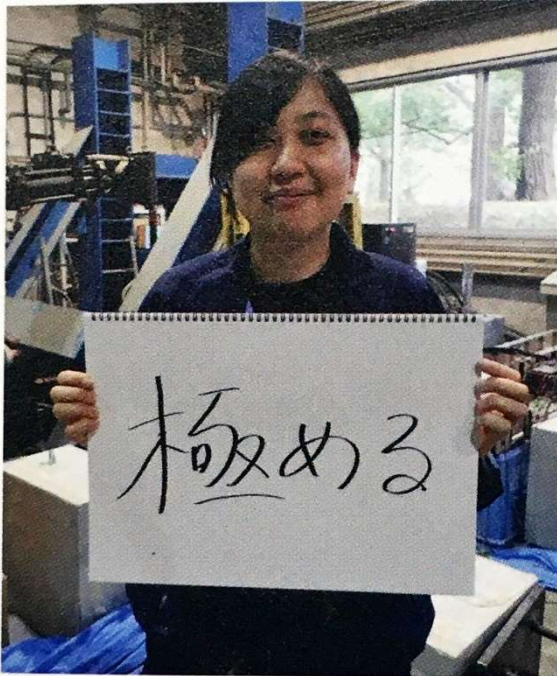 極める